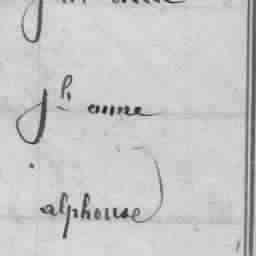 Jh anne
alphonse